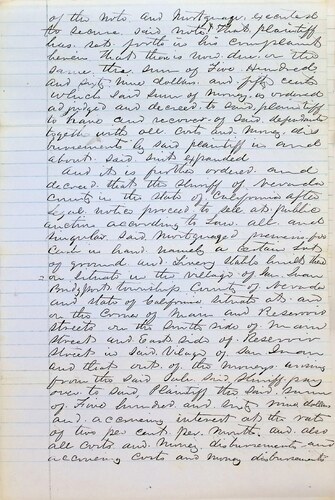 of the Note and Mortgage executed
to secure said note. That plaintiff
has set forth in his complaint
herein that there is now due on the
same the sum of Five Hundred
and sixty nine dollars and fifty cents
which said sum of money is ordered
adjudged and decreed to said plaintiff
to have and recover of said defendants
together with all costs and money dis
bursements by said plaintiff in and
about said suit expended
And it is further ordered and
decreed that the Sheriff of Nevada
County in the State of California after
legal notice proceed to sell at public
auction according to law all and
singular said mortgaged premises
namely a certain lot
of ground and Livery Stable built there
on situate in the village of San Juan
Bridgeport township County of Nevada
and State of California situate at and
on the Corner of Main and Reservoir
streets on the South side of Main
Street and East side of Reservoir
street in said Village of San Juan
and that out of the moneys arising
from the said Sale said Sheriff pay
over to said Plaintiff the said sum
of Five hundred and sixty nine dollars
and accruing interest at the rate
of two per cent per Month and also
all costs and money disbursements and
accruing costs and money disbursements